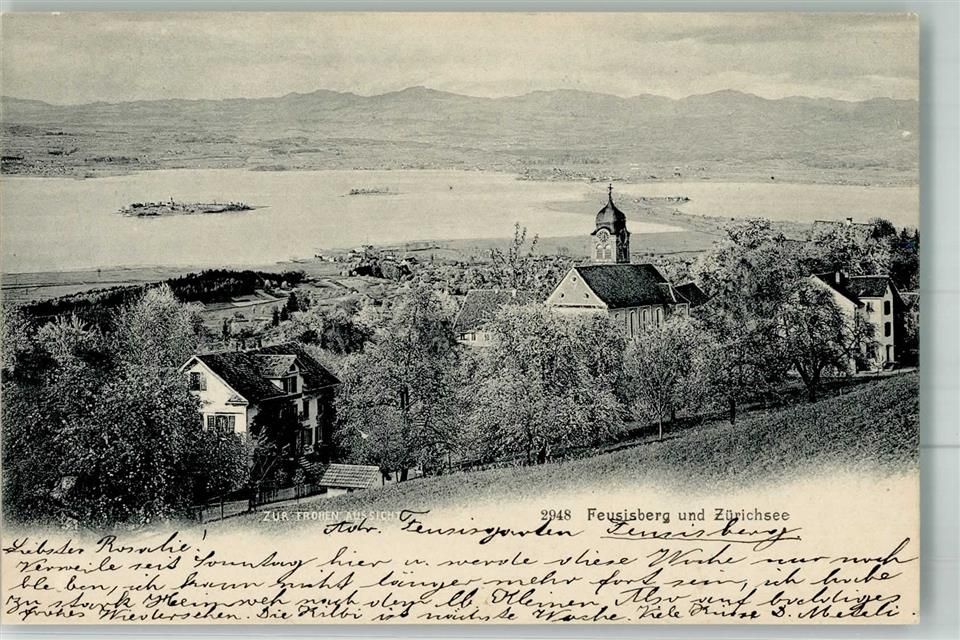 ZUR FROHEN AUSSICHT
2948 Feusisberg und Zürichsee
Adr. Feusisgarten Feusisberg
Liebster Rosalie!
Verweile seit Sonntag hier u. werde diese Woche nur noch
bleiben, ich kann nicht länger mehr fort sein, ich habe
zu stark Heimweh nach dem lb. Kleinen. Also auf baldiges
frohes Wiedersehen. Die Kilbi ist nächste Woche. Viele Küsse D.